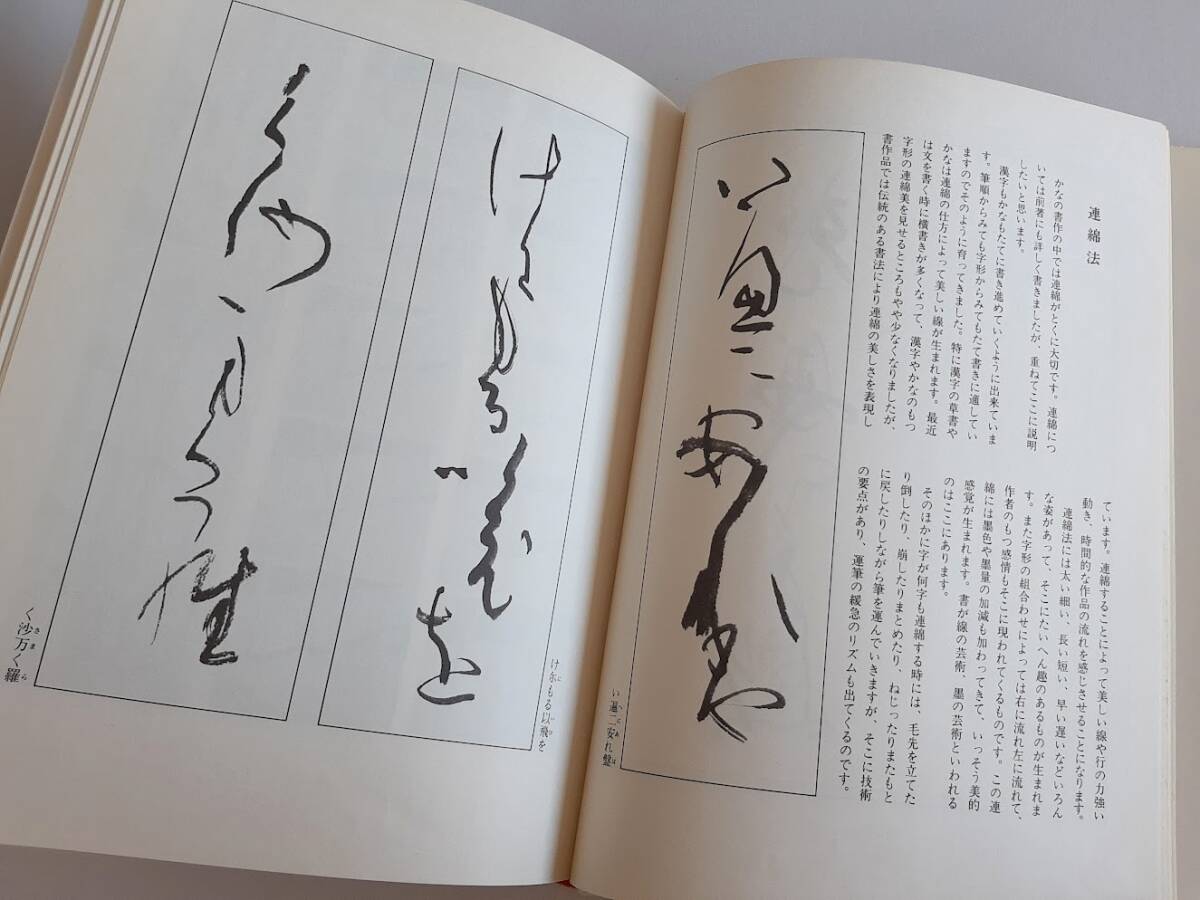 連綿法
かなの書作の中では連綿がとくに大切です。連綿につ
いては前著にも詳しく書きましたが、重ねてここに説明
したいと思います。
漢字もかなもたてに書き進めていくように出来ていま
す。筆順からみても字形からみてもたて書きに適してい
ますのでそのように育ってきました。特に漢字の草書や
かなは連綿の仕方によって美しい線が生まれます。最近
は文を書く時に横書きが多くなって、漢字やかなのもつ
字形の連綿美を見せるところもやや少なくなりましたが、
書作品では伝統のある書法により連綿の美しさを表現し
ています。連綿することによって美しい線や行の力強い
動き、時間的な作品の流れを感じさせることになります。
連綿法には太い細い、長い短い、早い遅いなどいろん
な姿があって、そこにたいへん趣のあるものが生まれま
す。また字形の組合わせによっては右に流れ左に流れて、
作者のもつ感情もそこに現われてくるものです。この連
綿には墨色や墨量の加減も加わってきて、いっそう美的
感覚が生まれます。書が線の芸術、墨の芸術といわれる
のはここにあります。
そのほかに字が何字も連綿する時には、毛先を立てた
り倒したり、崩したりまとめたり、ねじったりまたもと
に戻したりしながら筆を運んでいきますが、そこに技術
の要点があり、運筆の緩急のリズムも出てくるのです。
い遍二安れ盤
け尓もる以飛を
く沙万く羅